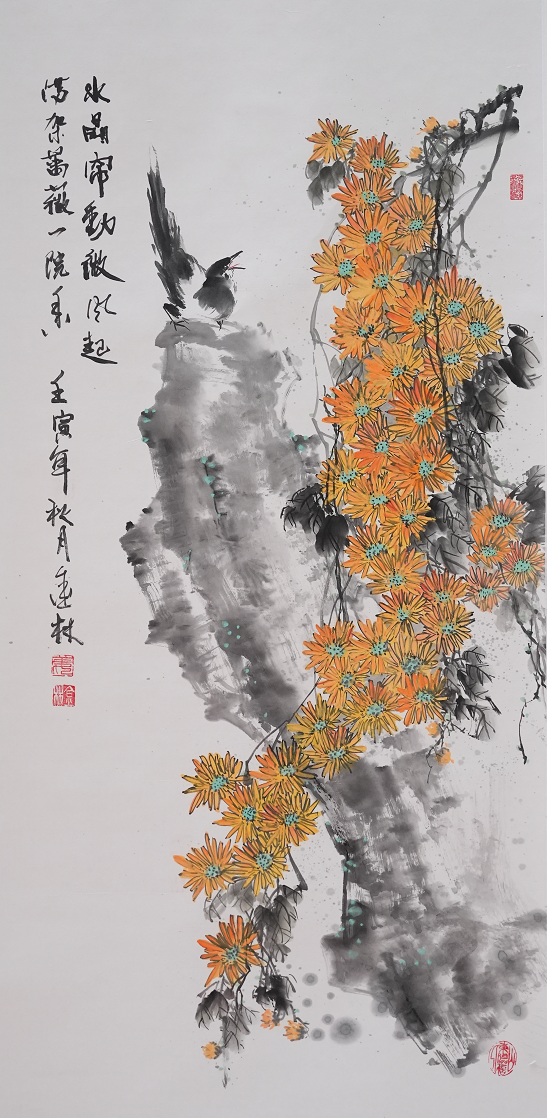 水晶帘動微風起
满架蔷薇一院香
壬寅年秋月建林